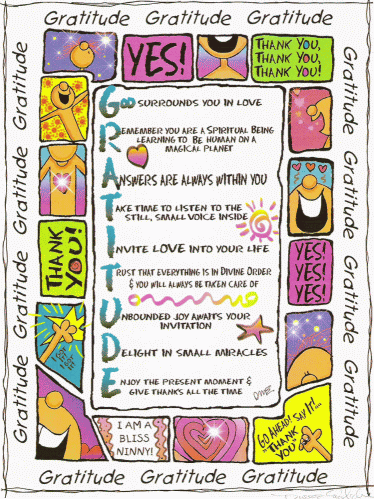 Gratitude Gratitude Gratitude
Gratitude
Gratitude
Gratitude
Gratitude
Gratitude
YES!
THANK YOU,
THANK YOU,
THANK YOU!
GOD SURROUNDS YOU IN LOVE
REMEMBER YOU ARE A SPIRITUAL BEING
LEARNING TO BE HUMAN ON A
MAGICAL PLANET
ANSWERS ARE ALWAYS WITHIN YOU
TAKE TIME TO LISTEN TO THE
STILL, SMALL VOICE INSIDE
INVITE LOVE INTO YOUR LIFE
TRUST THAT EVERYTHING IS IN DIVINE ORDER
& YOU WILL ALWAYS BE TAKEN CARE OF
UNBOUNDED JOY AWAITS YOUR
INVITATION
DELIGHT IN SMALL MIRACLES
ENJOY THE PRESENT MOMENT &
GIVE THANKS ALL THE TIME
THANK
YOU!
YES!
YES!
YES!
I AM A
BLISS
NINNY!
GO AHEAD! SAY IT...
"THANK
YOU"
Gratitude
Gratitude
Gratitude
Gratitude
Gratitude Gratitude Gratitude